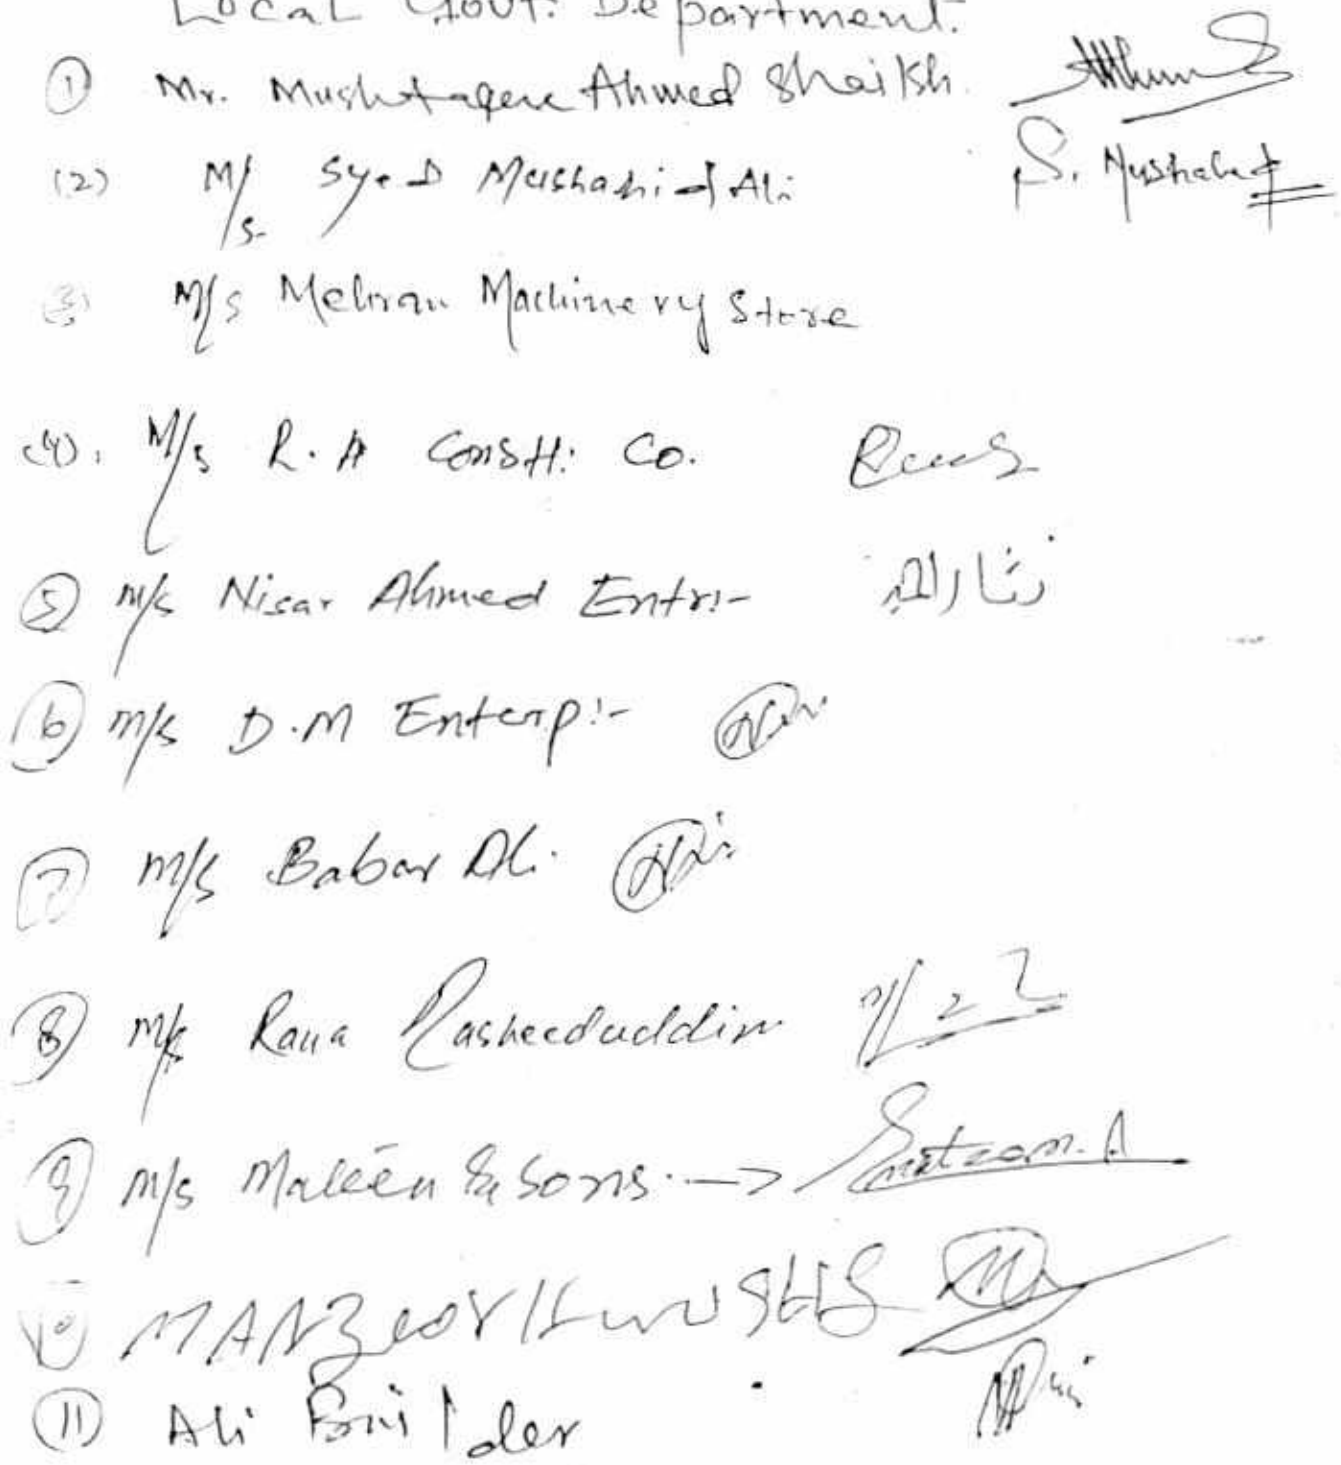 Local Govt: Department.
① Mr. Mushtaque Ahmed Shaikh
(2) M/s. Syed Mushahid Ali S. Mushahid
(3) M/s Mehran Machinery Store
(4). M/s R.A Constt: Co.
⑤ M/s Nisar Ahmed Entr:- نثار احمد
⑥ M/s D.M Enterp:-
⑦ M/s Babar Ali.
⑧ M/s Rana Rasheeduddin
⑨ M/s Maleen & Sons. →
⑩ MANZOOR
⑪ Ali Builder